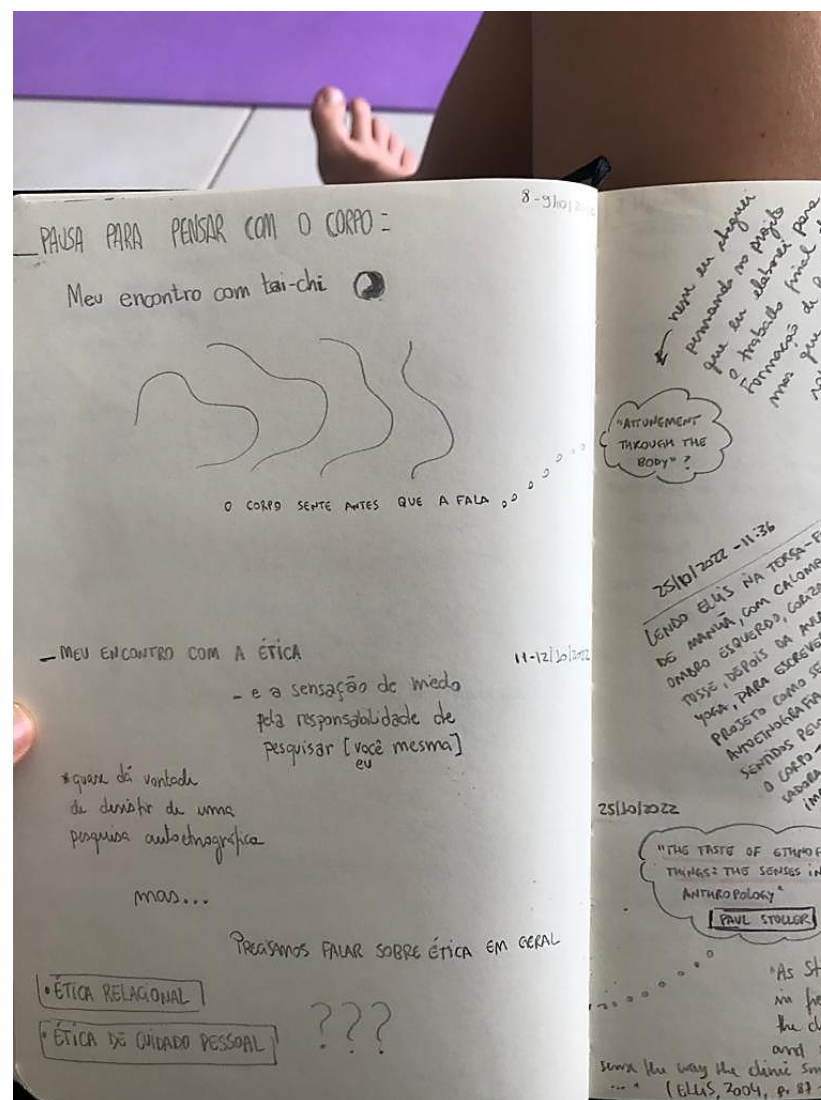 8-9/10/2022
_ PAUSA PARA PENSAR COM O CORPO:
Meu encontro com tai-chi
O CORPO SENTE ANTES QUE A FALA
_ MEU ENCONTRO COM A ÉTICA
11-12/10/2022
_ e a sensação de medo
pela responsabilidade de
pesquisar [você mesma]
eu
*quase dá vontade
de desistir de uma
pesquisa autoetnográfica
mas...
PRECISAMOS FALAR SOBRE ÉTICA EM GERAL
• ÉTICA RELACIONAL
• ÉTICA DE CUIDADO PESSOAL
???
nem eu cheguei
pensando no projeto
que eu elaborei para
o trabalho final
Formação de
mas que
"ATTUNEMENT
THROUGH THE
BODY" ?
25/10/2022 - 11:36
LENDO ELLIS NA TERÇA-F
DE MANHÃ, COM CALOMB
OMBRO ESQUERDO, CORIZA
TOSSE, DEPOIS DA AULA
YOGA, PARA ESCREVER
PROJETO COMO SE
AUTOETNOGRAFIA
SENTIDOS PELO
O CORPO -
SADORA
25/10/2022
"THE TASTE OF ETHNO
THINGS: THE SENSES IN
ANTHROPOLOGY"
PAUL STOLLER
"As St
in
the cl
and
sense the way the clinic sm
...." (ELLIS, 2004, p. 87